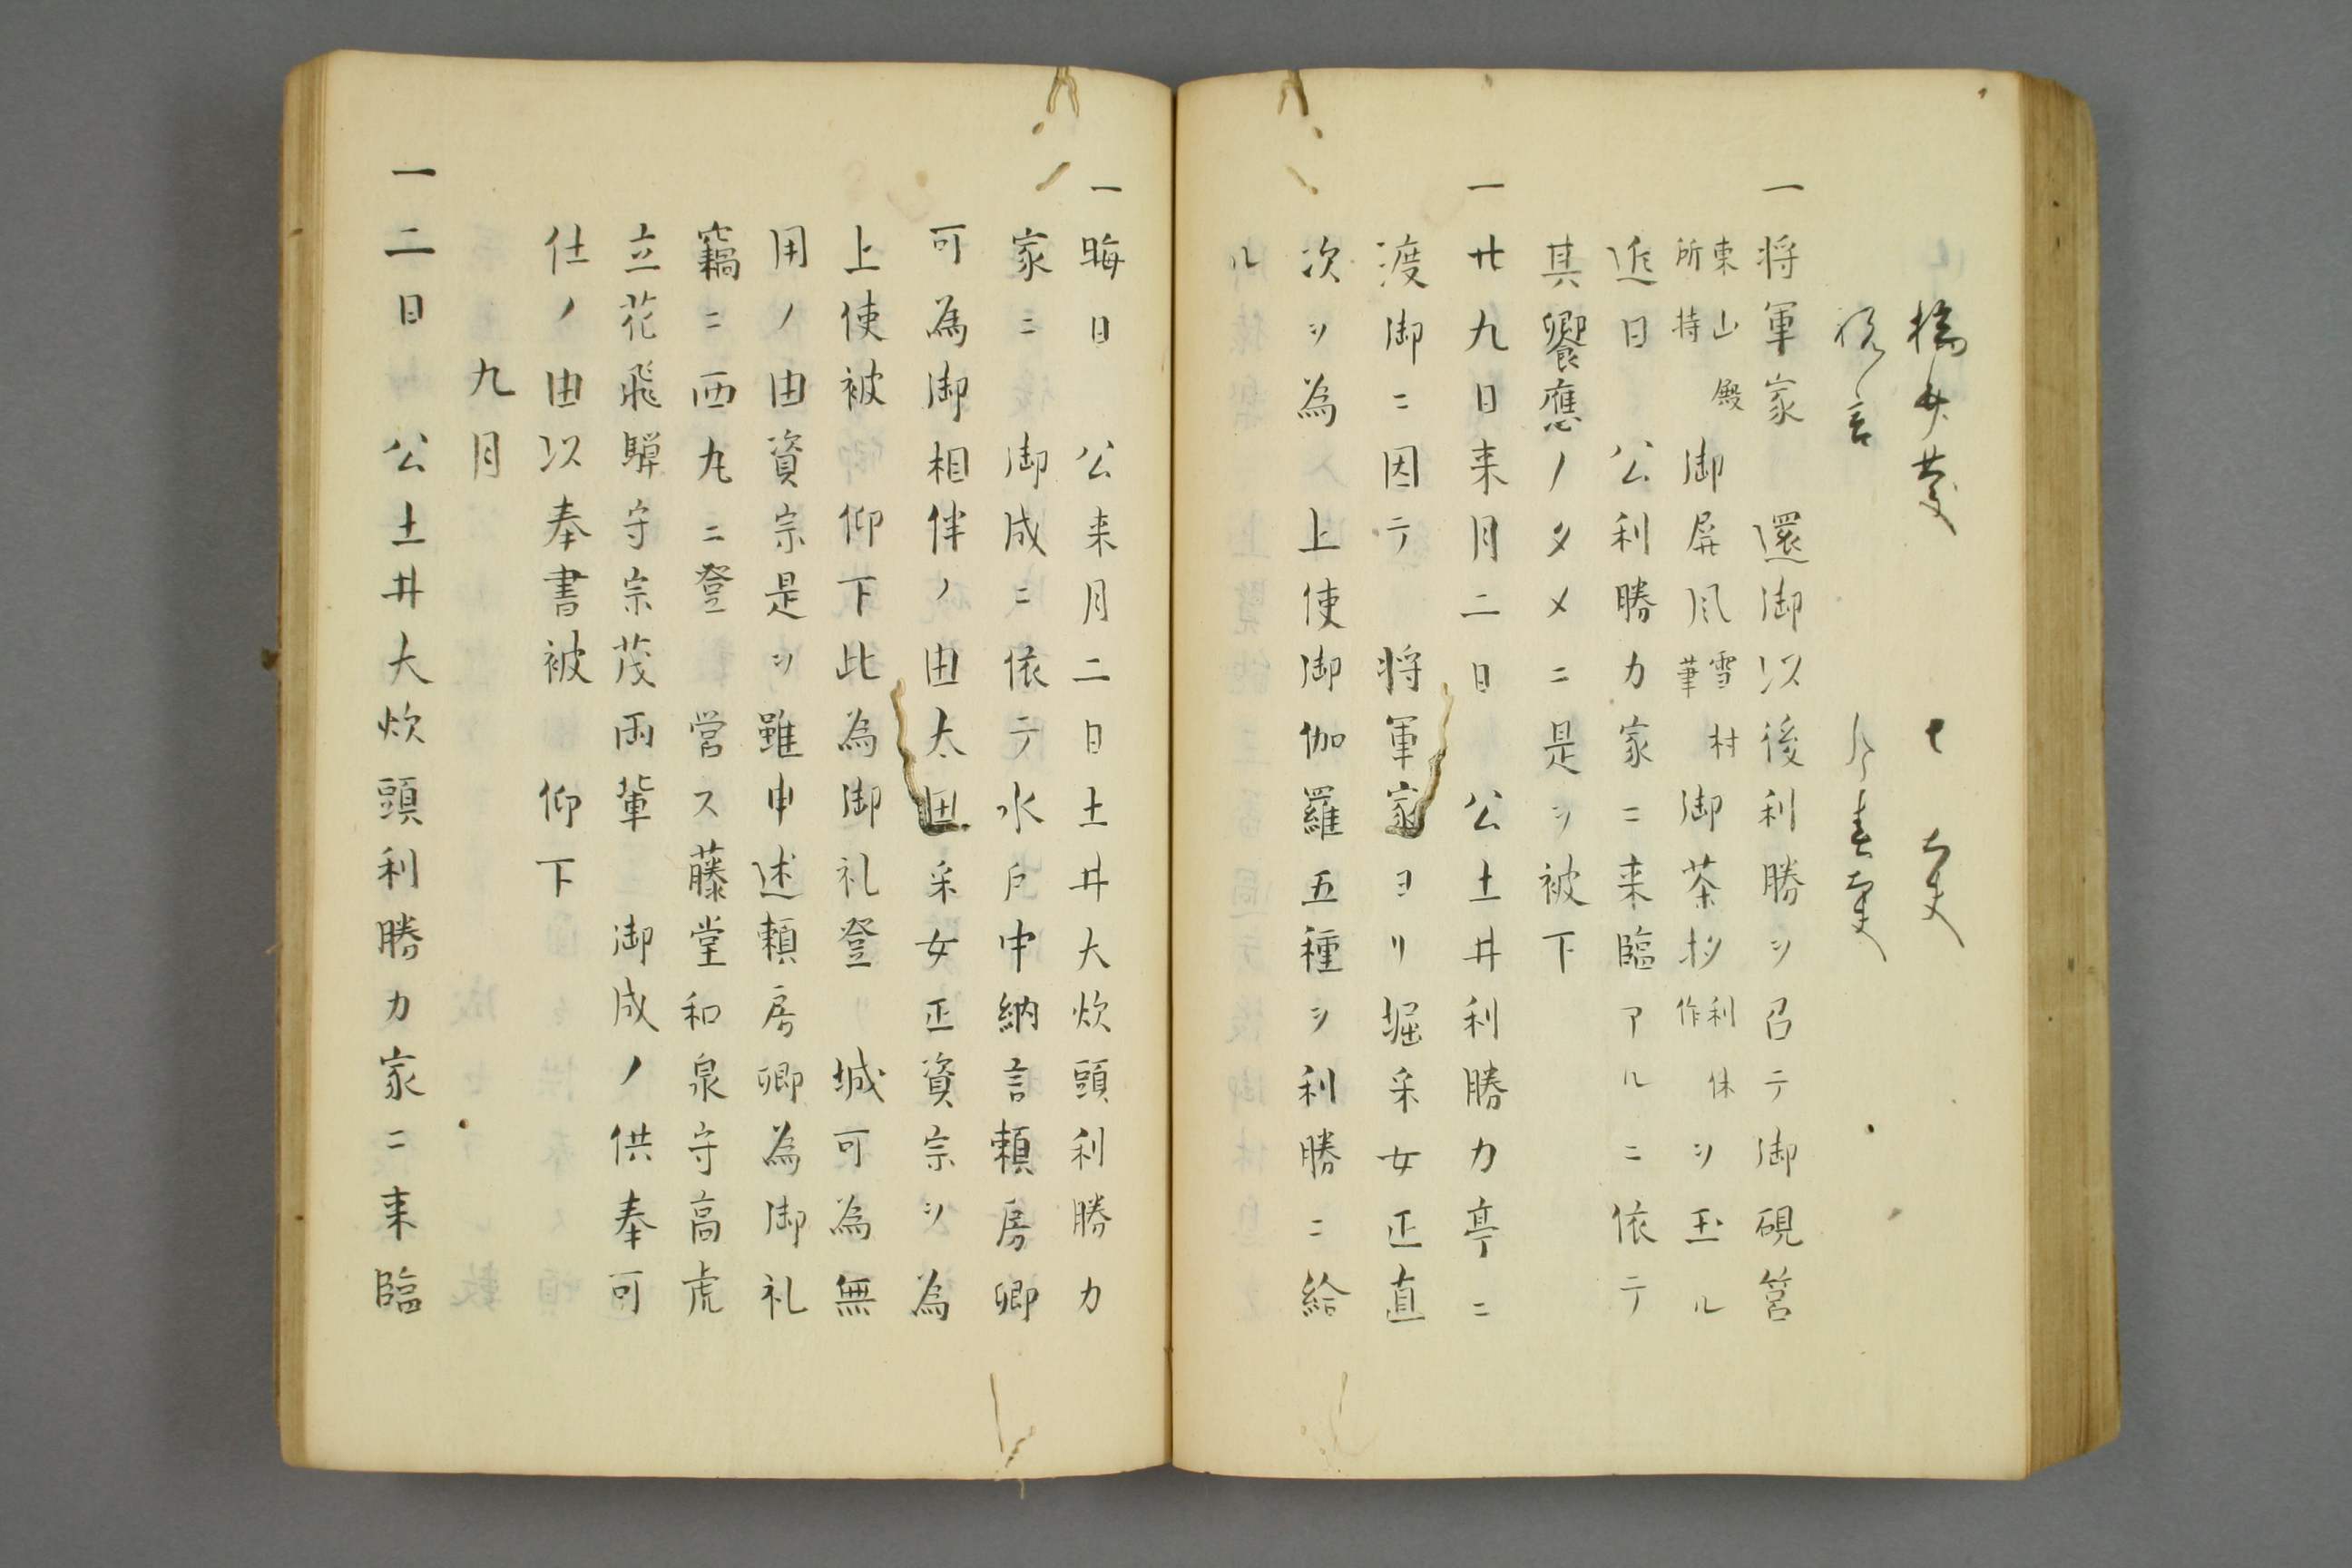 橋弁慶　七大夫
祝言　今春大夫
一将軍家　還御以後利勝ヲ召テ御硯筥
東山殿所持御屏風雪村筆御茶杓利休作ヲ玉ル
近日　公利勝カ家ニ来臨アルニ依テ
其饗應ノタメニ是ヲ被下
一廿九日来月二日　公土井利勝カ亭ニ
渡御ニ因テ　将軍家ヨリ堀采女正直
次ヲ為　上使御伽羅五種ヲ利勝ニ給
ル
一晦日　公来月二日土井大炊頭利勝カ
家ニ　御成ニ依テ水戸中納言頼房卿
可為御相伴ノ由太田采女正資宗ヲ為
上使被　仰下此為御礼登リ　城可為無
用ノ由資宗是ヲ雖申述頼房卿為御礼
竊ニ西丸ニ登　営ス藤堂和泉守高虎
立花飛騨守宗茂両輩　御成ノ供奉可
仕ノ由以奉書被　仰下
九月
一二日　公土井大炊頭利勝カ家ニ来臨